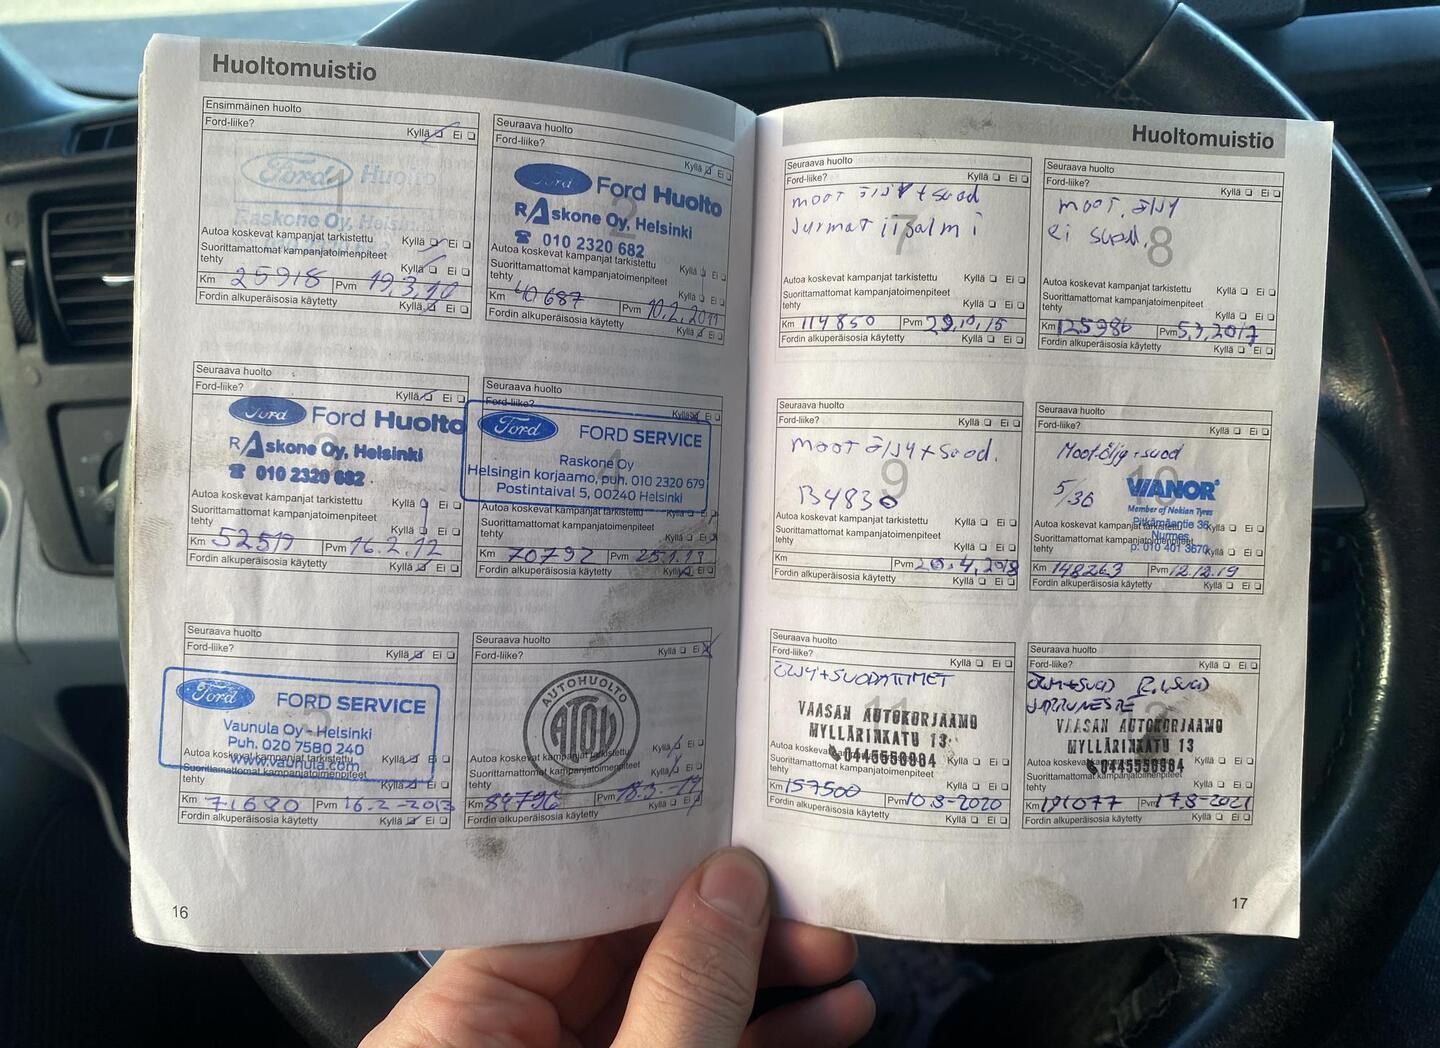 Huoltomuistio
Ensimmäinen huolto
Ford-liike? Kyllä Ei
Ford Huolto
Raskone Oy, Helsinki
Autoa koskevat kampanjat tarkistettu Kyllä Ei
Suorittamattomat kampanjatoimenpiteet
tehty Kyllä Ei
Km 25918 Pvm 19.3.10
Fordin alkuperäisosia käytetty Kyllä Ei
Seuraava huolto
Ford-liike? Kyllä Ei
2
Ford Ford Huolto
Raskone Oy, Helsinki
☎ 010 2320 682
Autoa koskevat kampanjat tarkistettu Kyllä Ei
Suorittamattomat kampanjatoimenpiteet
tehty Kyllä Ei
Km 40687 Pvm 10.2.2011
Fordin alkuperäisosia käytetty Kyllä Ei
Seuraava huolto
Ford-liike? Kyllä Ei
Ford Ford Huolto
Raskone Oy, Helsinki
☎ 010 2320 682
Autoa koskevat kampanjat tarkistettu Kyllä Ei
Suorittamattomat kampanjatoimenpiteet
tehty Kyllä Ei
Km 52519 Pvm 16.2.12
Fordin alkuperäisosia käytetty Kyllä Ei
Seuraava huolto
Ford-liike? Kyllä Ei
4
Ford FORD SERVICE
Raskone Oy
Helsingin korjaamo, puh. 010 2320 679
Postintaival 5, 00240 Helsinki
Autoa koskevat kampanjat tarkistettu Kyllä Ei
Suorittamattomat kampanjatoimenpiteet
tehty Kyllä Ei
Km 70792 Pvm 25.1.13
Fordin alkuperäisosia käytetty Kyllä Ei
Seuraava huolto
Ford-liike? Kyllä Ei
Ford FORD SERVICE
Vaunula Oy - Helsinki
Puh. 020 7580 240
www.vaunula.com
Autoa koskevat kampanjat tarkistettu Kyllä Ei
Suorittamattomat kampanjatoimenpiteet
tehty Kyllä Ei
Km 71680 Pvm 16.2-2013
Fordin alkuperäisosia käytetty Kyllä Ei
Seuraava huolto
Ford-liike? Kyllä Ei
AUTOHUOLTO
ATOY
Autoa koskevat kampanjat tarkistettu Kyllä Ei
Suorittamattomat kampanjatoimenpiteet
tehty Kyllä Ei
Km 84796 Pvm 18.3.-14
Fordin alkuperäisosia käytetty Kyllä Ei
16
Huoltomuistio
Seuraava huolto
Ford-liike? Kyllä Ei
7
moot öljy + suod
Jurmat iisalmi
Autoa koskevat kampanjat tarkistettu Kyllä Ei
Suorittamattomat kampanjatoimenpiteet
tehty Kyllä Ei
Km 114850 Pvm 29.10.15
Fordin alkuperäisosia käytetty Kyllä Ei
Seuraava huolto
Ford-liike? Kyllä Ei
8
moot. öljy
ei suod.
Autoa koskevat kampanjat tarkistettu Kyllä Ei
Suorittamattomat kampanjatoimenpiteet
tehty Kyllä Ei
Km 125986 Pvm 5.3.2017
Fordin alkuperäisosia käytetty Kyllä Ei
Seuraava huolto
Ford-liike? Kyllä Ei
9
moot öljy + suod.
Autoa koskevat kampanjat tarkistettu Kyllä Ei
Suorittamattomat kampanjatoimenpiteet
tehty Kyllä Ei
Km Pvm 20.4.2018
Fordin alkuperäisosia käytetty Kyllä Ei
Seuraava huolto
Ford-liike? Kyllä Ei
10
Moot.öljy + suod
5/30
VIANOR
Member of Nokian Tyres
Pitkämäentie 36
Nurmes
p: 010 401 3670
Autoa koskevat kampanjat tarkistettu Kyllä Ei
Suorittamattomat kampanjatoimenpiteet
tehty Kyllä Ei
Km 148263 Pvm 12.12.19
Fordin alkuperäisosia käytetty Kyllä Ei
Seuraava huolto
Ford-liike? Kyllä Ei
11
ÖLJY + SUODATTIMET
VAASAN AUTOKORJAAMO
MYLLÄRINKATU 13
0445550984
Autoa koskevat kampanjat tarkistettu Kyllä Ei
Suorittamattomat kampanjatoimenpiteet
tehty Kyllä Ei
Km 157500 Pvm 10.8-2020
Fordin alkuperäisosia käytetty Kyllä Ei
Seuraava huolto
Ford-liike? Kyllä Ei
JARRUNESTE
VAASAN AUTOKORJAAMO
MYLLÄRINKATU 13
0445550984
Autoa koskevat kampanjat tarkistettu Kyllä Ei
Suorittamattomat kampanjatoimenpiteet
tehty Kyllä Ei
Km 191077 Pvm 17.8-2021
Fordin alkuperäisosia käytetty Kyllä Ei
17